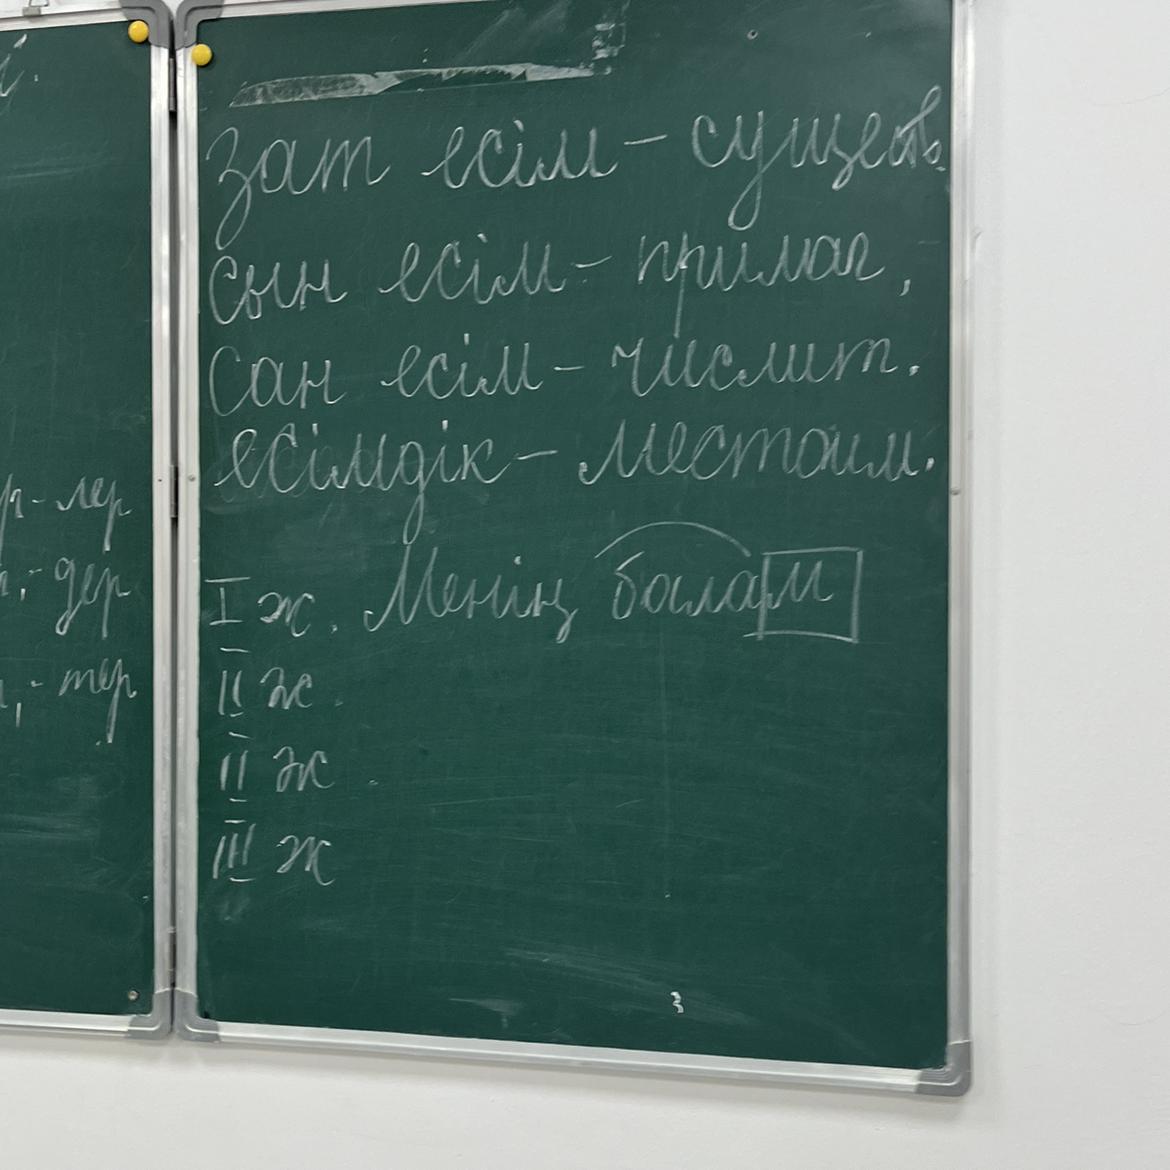 -лер
-дер
-тер
Зат есім – существ.
Сын есім – прилаг.
Сан есім – числит.
есімдік – местоим.
I ж. Менің балам
II ж.
II ж.
III ж